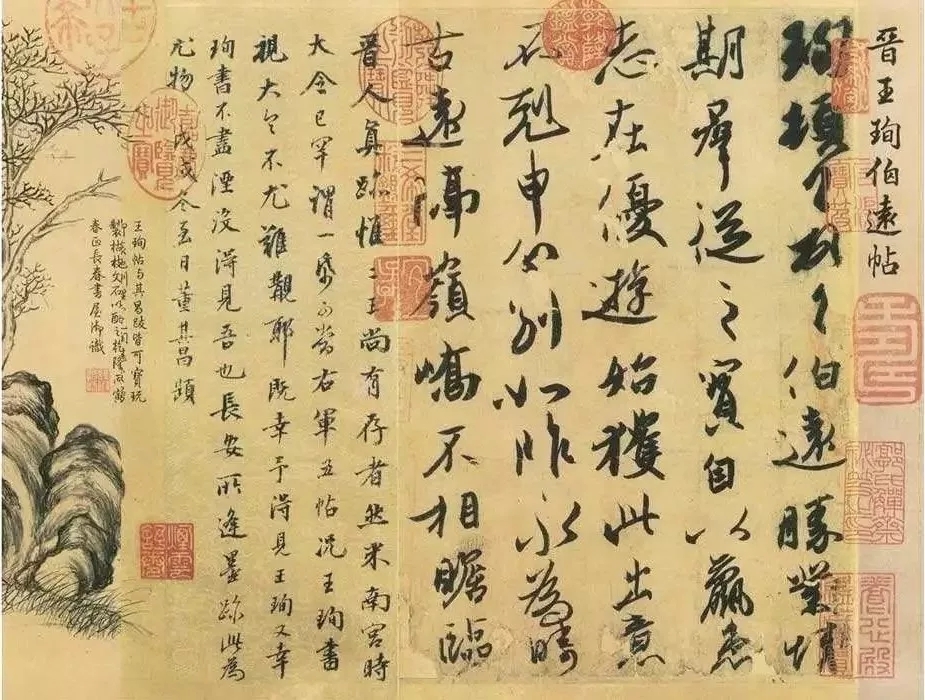 晉王珣伯遠帖
珣頓首頓首伯遠勝業情
期群從之寶自以羸患
志在優遊始獲此出意
不剋申分別如昨永為疇
古遠隔嶺嶠不相瞻臨
晉人真跡惟二王尚有存者然米南宮時
大令已罕謂一紙可當右軍五帖況王珣書
視大令不尤難覯耶既幸予得見王珣又幸
珣書不盡湮沒得見吾也長安所逢墨跡此為
尤物 戊戌冬至日董其昌題
王珣帖与其昌跋皆可寶玩
春正長春書屋御識